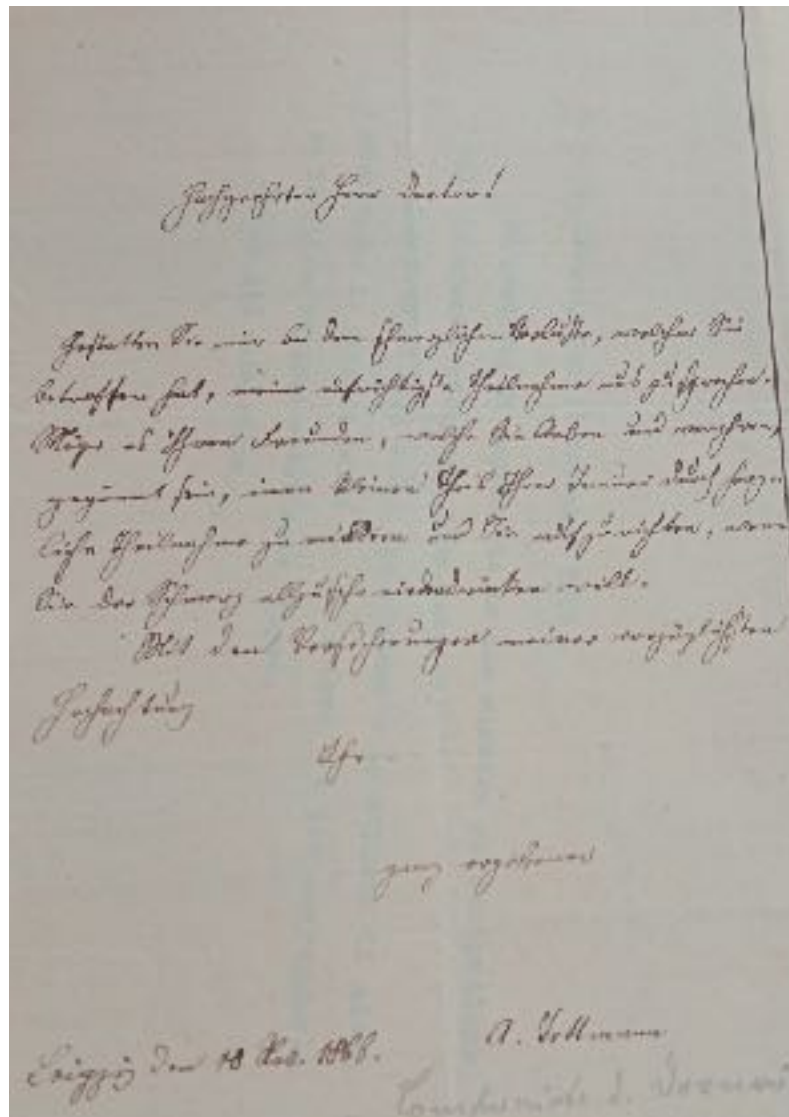 Hochgeehrter Herr Doctor!
Gestatten Sie mir bei dem schmerzlichen Verluste, welcher Sie
betroffen hat, meine aufrichtigste Theilnahme auszusprechen.
Möge es Ihren Freunden, welche Sie lieben und verehren,
gegönnt sein, einen kleinen Theil Ihrer Trauer durch herz-
liche Theilnahme zu mildern und Sie aufzurichten, wenn
Sie der Schmerz allzusehr niederdrücken will.
Mit den Versicherungen meiner vorzüglichsten
Hochachtung
Ihr
ganz ergebener
A.
Leipzig den 18 Nov. 1866.